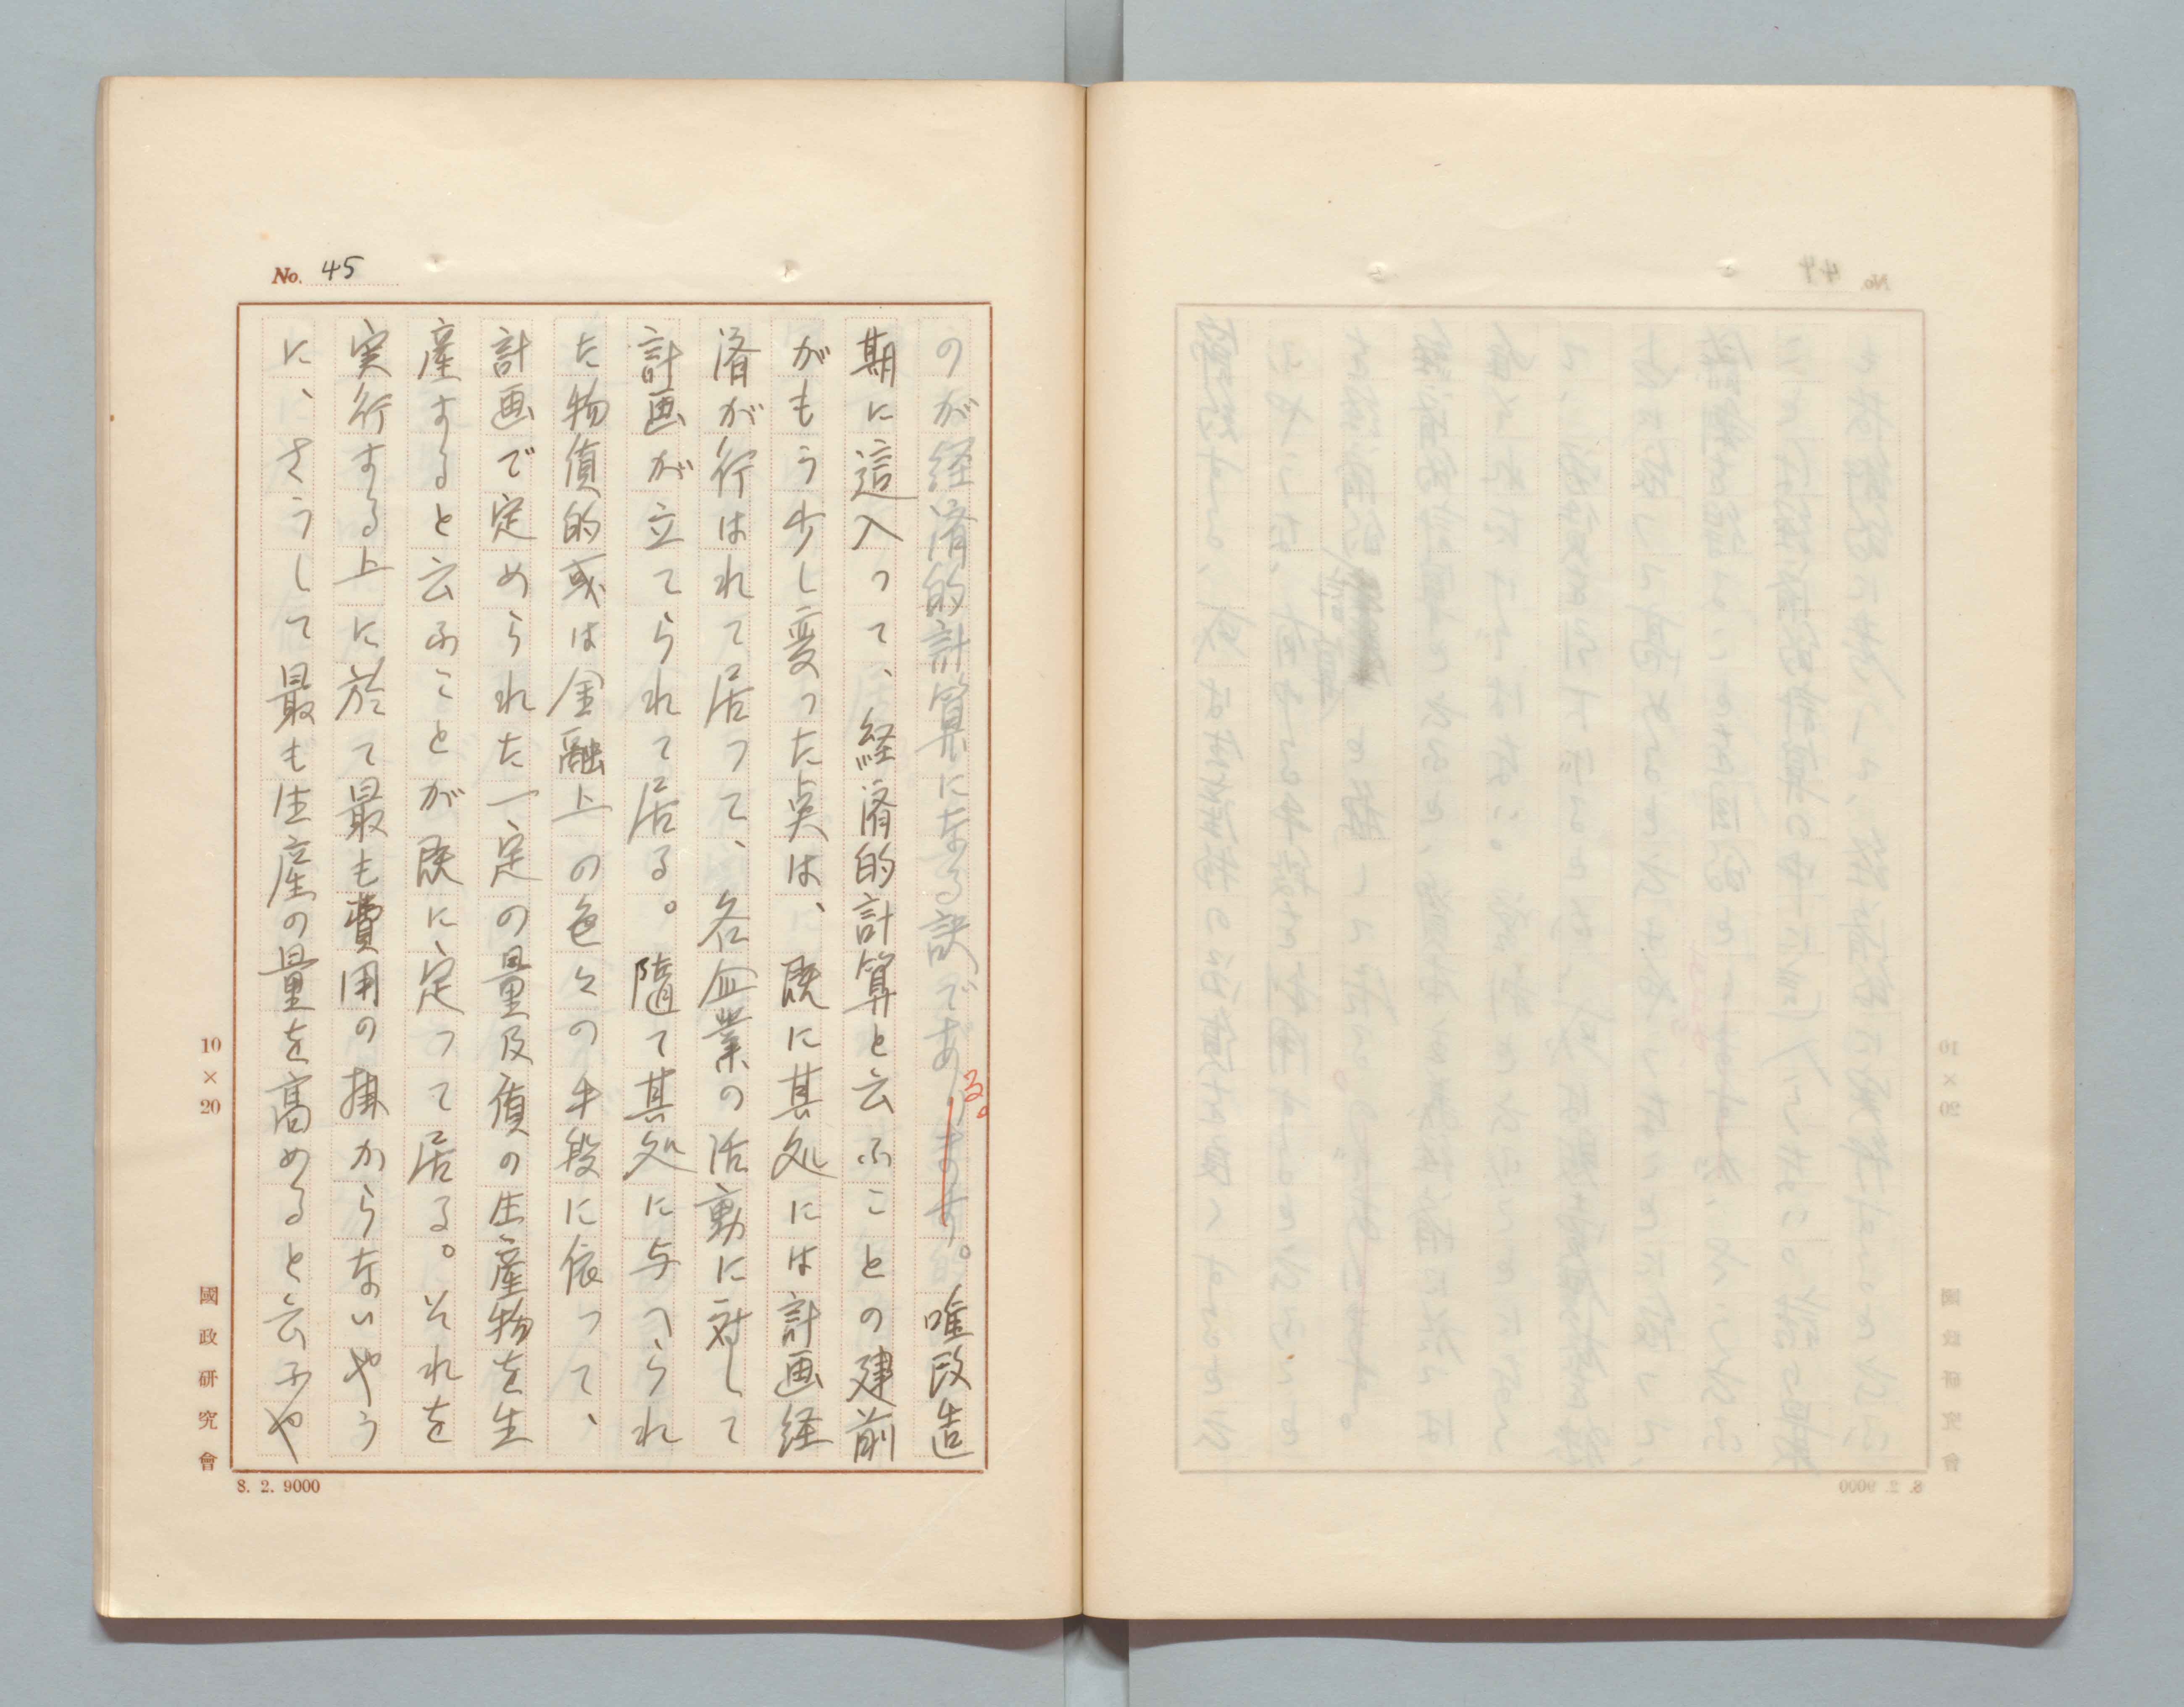 No. 45
のが経済的計算になる訳であります。唯改造
る。
期に這入つて、経済的計算と云ふことの建前
がもう少し変つた点は、既に其処には計画経
済が行はれて居つて、各企業の活動に対して
計画が立てられて居る。随て其処に与へられ
た物質的或は金融上の色々の手段に依つて、
計画で定められた一定の量及質の生産物を生
産すると云ふことが既に定つて居る。それを
実行する上に於て最も費用の掛からないやう
に、さうして最も生産の量を高めると云ふや
10×20
國政研究會
8. 2. 9000